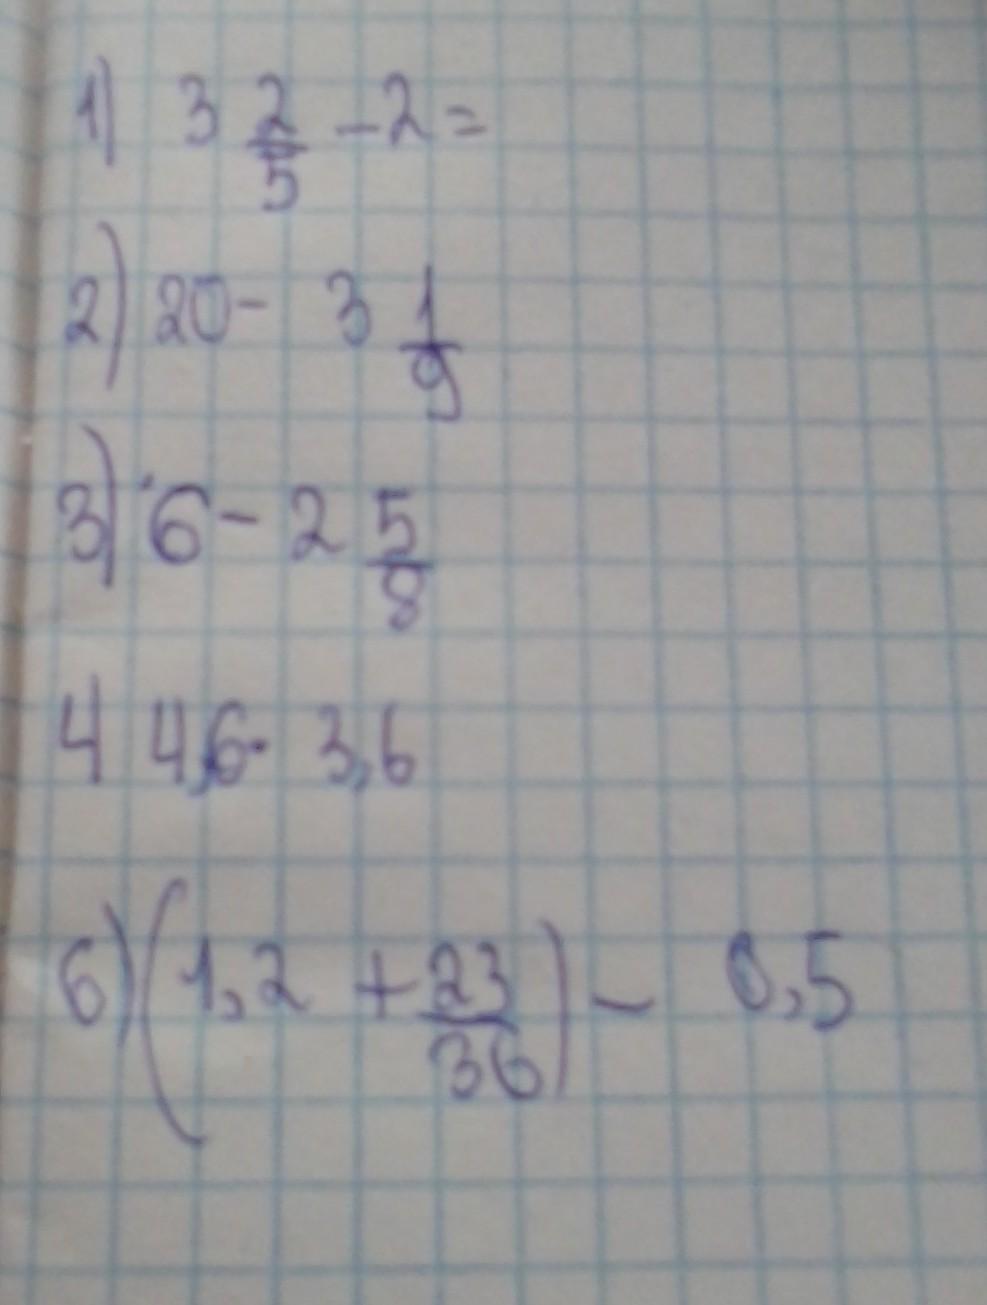 1) 3 2/5 - 2 =
2) 20 - 3 1/9
3) 6 - 2 5/8
4 4,6 - 3,6
6) (1,2 + 23/36) - 0,5